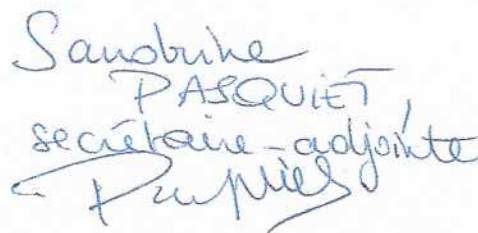 Sandrine
PASQUIET,
secrétaire-adjointe